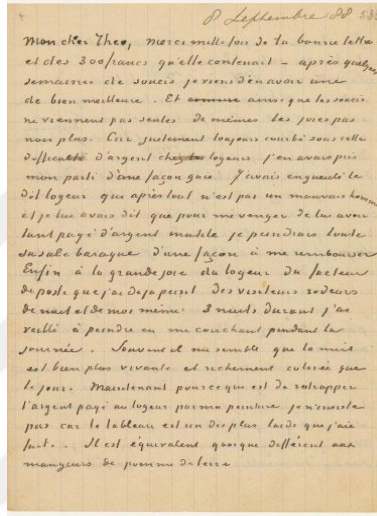 8 Septembre 88
Mon cher Theo, merci mille fois de ta bonne lettre
et des 300 francs qu'elle contenait – après quelques
semaines de soucis je viens d'en avoir une
de bien meilleure. Et comme ainsi que les soucis
ne viennent pas seules de mêmes les joies pas
non plus. Car justement toujours courbé sous cette
difficulté d'argent chez les logeurs j'en avais pris
mon parti d'une façon gaie J'avais engueulé le
dit logeur qui après tout n'est pas un mauvais homme
et je lui avais dit que pour me venger de lui avoir
tant payé d'argent inutile je peindrais toute
sa sale baraque d'une façon à me rembourser
Enfin à la grande joie du logeur du facteur
de poste que j'ai déjà peint des visiteurs rodeurs
de nuit et de moi même 3 nuits durant j'ai
veillé à peindre en me couchant pendant la
journée. Souvent il me semble que la nuit
est bien plus vivante et richement colorée que
le jour. Maintenant pour ce qui est de rattrapper
l'argent payé au logeur par ma peinture je n'insiste
pas car le tableau est un des plus laids que j'aie
fait. Il est équivalent quoique différent aux
mangeurs de pomme de terre